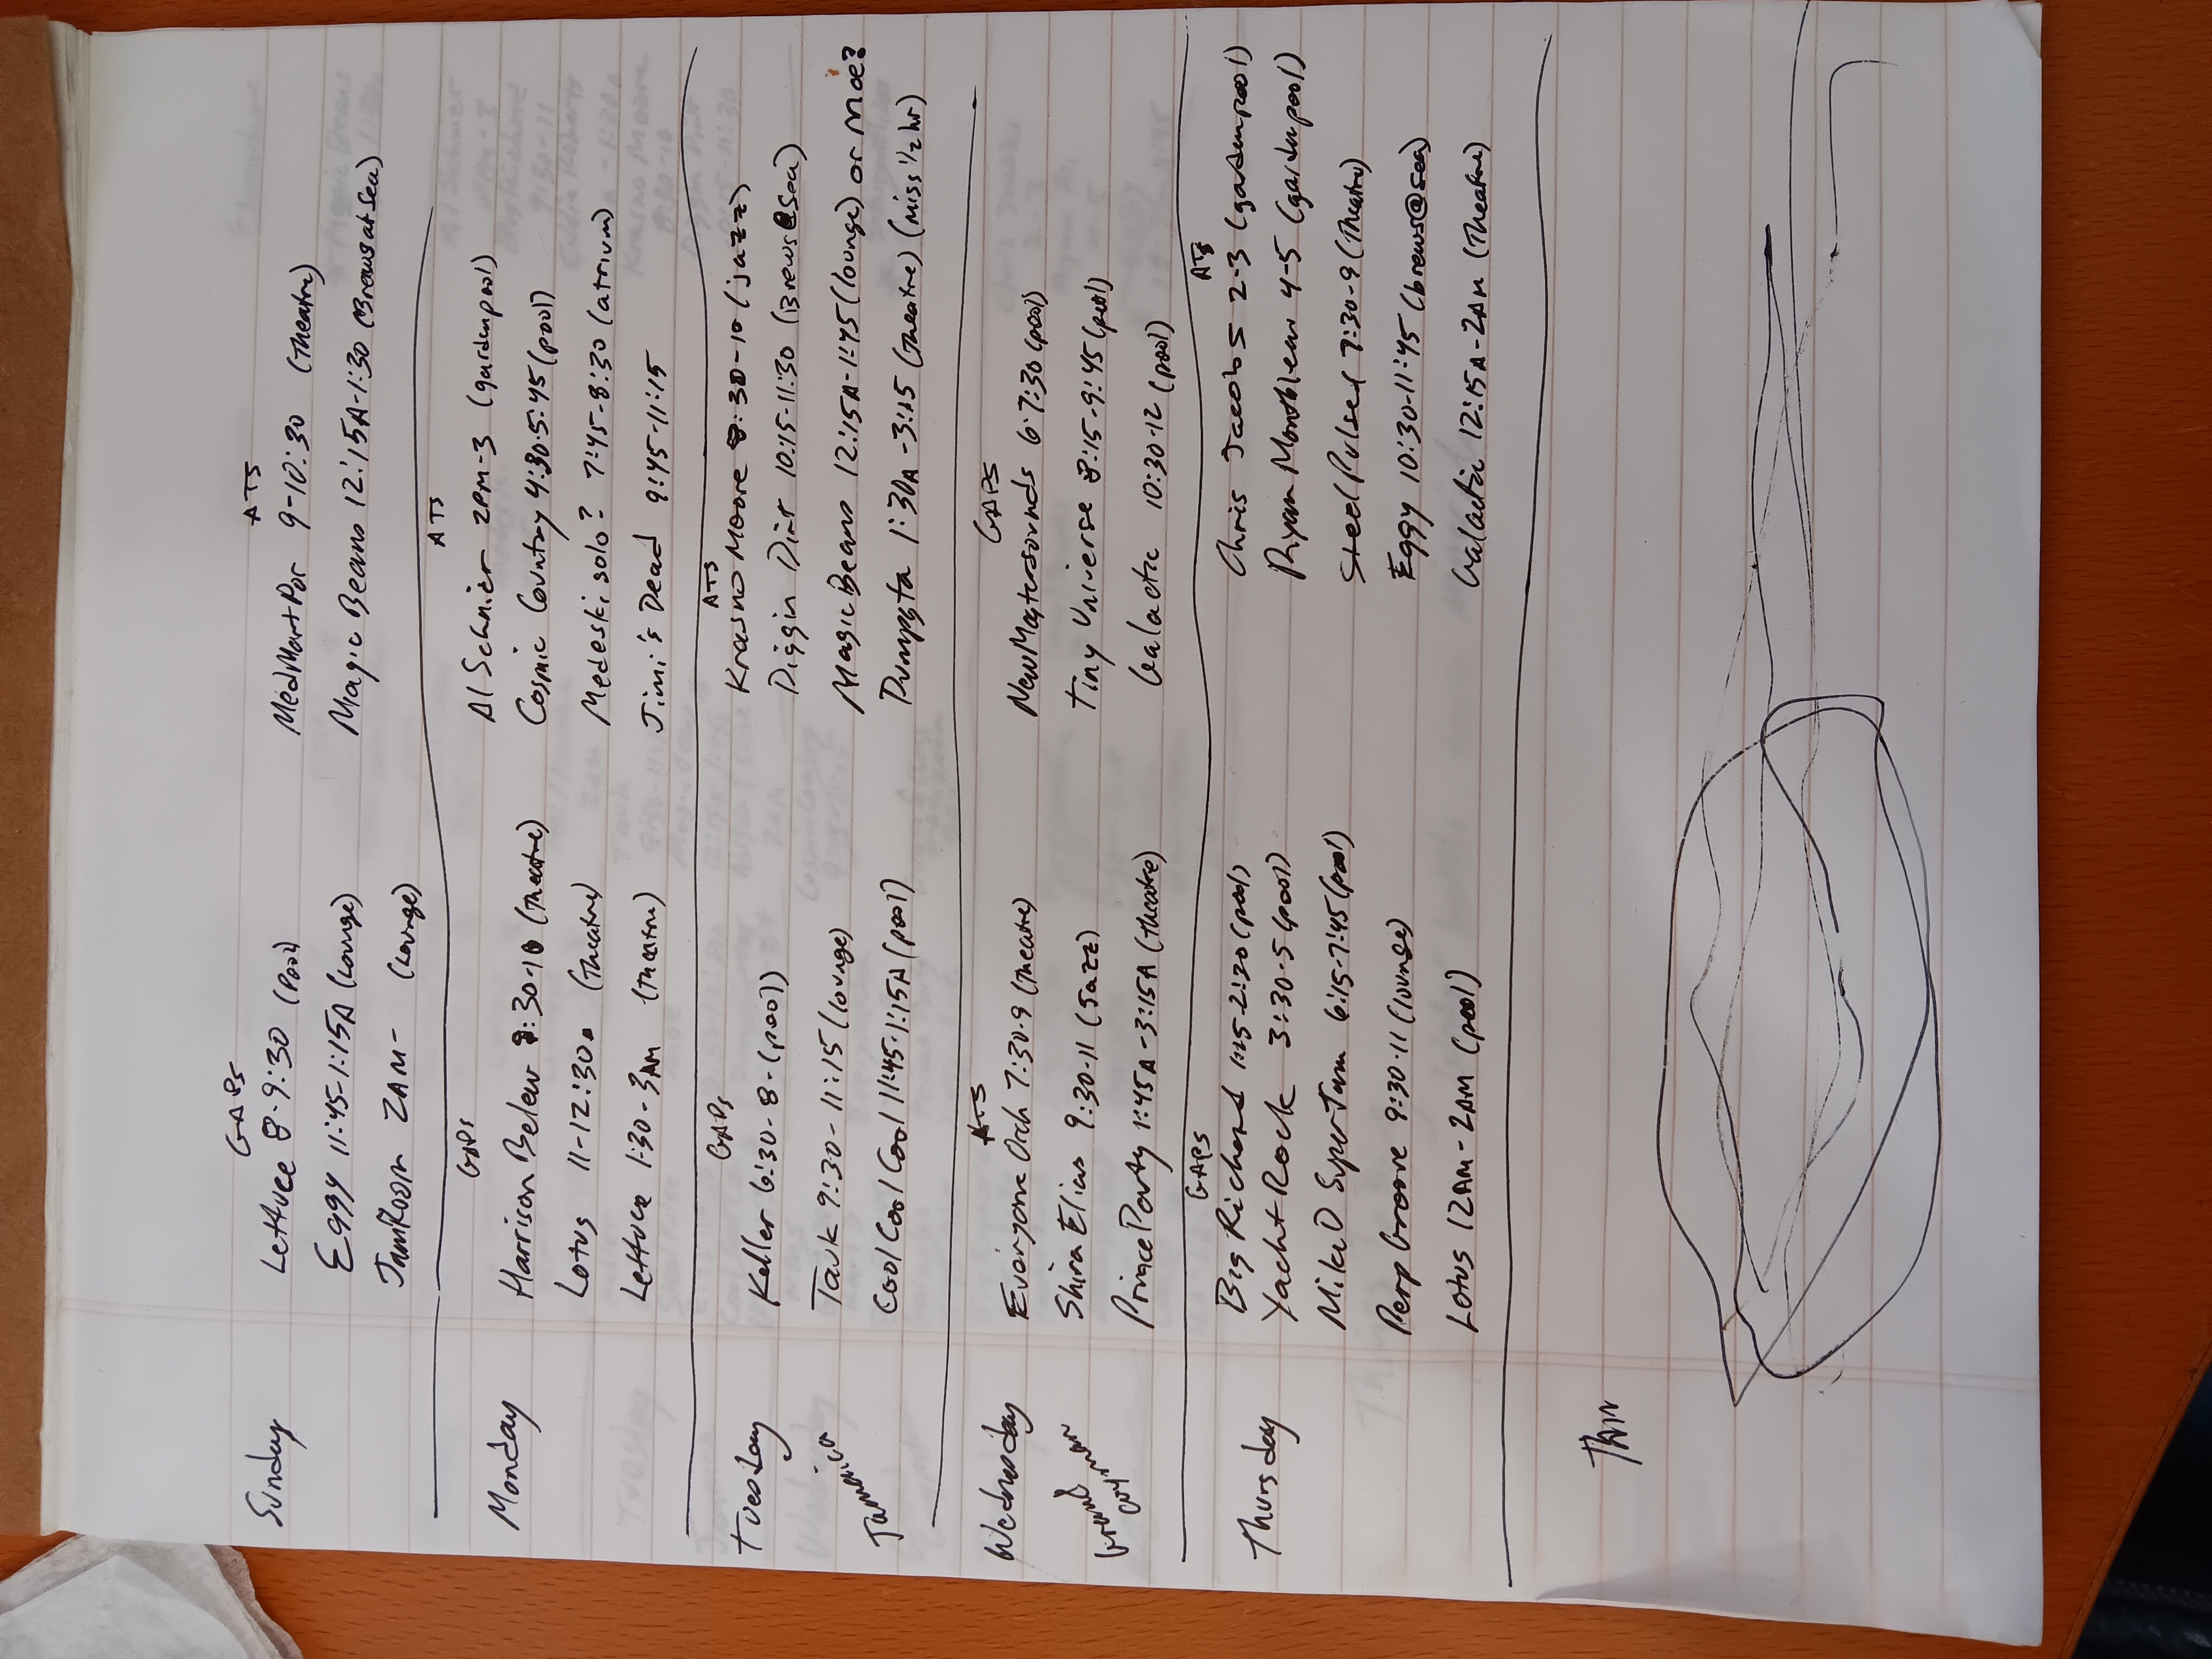 Sunday
GAPS
Lettuce 8-9:30 (Pool)
Eggy 11:45-1:15A (Lounge)
JamRoom 2AM- (Lounge)
ATS
MedMart+Por 9-10:30 (Theatre)
Magic Beans 12:15A-1:30 (Brews at Sea)
Monday
GAPS
Harrison Belew 8:30-10 (Theatre)
Lotus 11-12:30a (Theatre)
Lettuce 1:30-3AM (theatre)
ATS
Al Schnier 2PM-3 (gardenpool)
Cosmic Country 4:30-5:45 (pool)
Medeski solo? 7:45-8:30 (atrium)
Jimi's Dead 9:45-11:15
Tuesday
Jamaica
GAPs
Keller 6:30-8-(pool)
Tauk 9:30-11:15 (lounge)
Cool Cool Cool 11:45-1:15A (pool)
ATS
Krasno Moore 8:30-10 (jazz)
Diggin Dirt 10:15-11:30 (Brews@Sea)
Magic Beans 12:15A-1:45 (lounge) or Moe?
Dumpsta 1:30A-3:15 (theatre) (miss 1/2 hr)
Wednesday
Grand Cayman
ATS
Everyone Orch 7:30-9 (theatre)
Shira Elias 9:30-11 (Jazz)
Prince Party 11:45A-3:15A (theatre)
GAPS
NewMastersounds 6-7:30 (pool)
Tiny Universe 8:15-9:45 (pool)
Galactic 10:30-12 (pool)
Thursday
GAPS
Big Richard 1:15-2:30 (pool)
Yacht Rock 3:30-5 (pool)
Mike D SuperJam 6:15-7:45 (pool)
Perp Groove 9:30-11 (lounge)
Lotus 12AM-2AM (pool)
ATS
Chris Jacobs 2-3 (gardenpool)
Ryan Montbleau 4-5 (gardenpool)
Steel Pulse 7:30-9 (Theatre)
Eggy 10:30-11:45 (brews@sea)
Galactic 12:15A-2AM (Theatre)